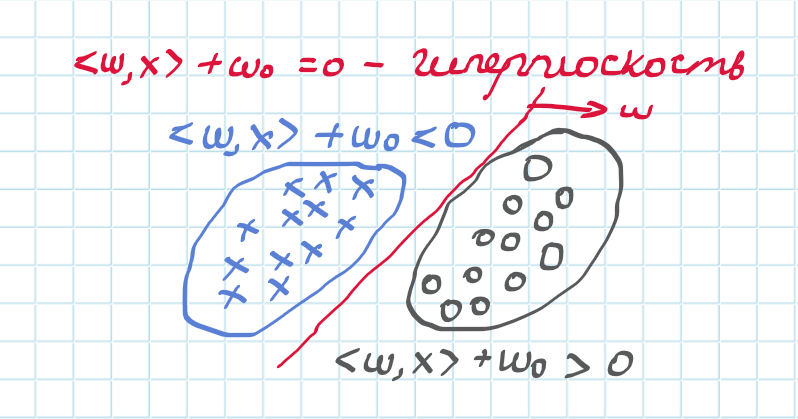 <w,x> + w₀ = 0 - гиперплоскость
w
<w,x> + w₀ < 0
<w,x> + w₀ > 0